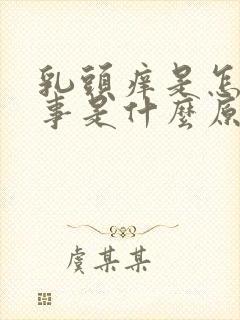 乳頭痒是怎
事是什麼原
虞某某